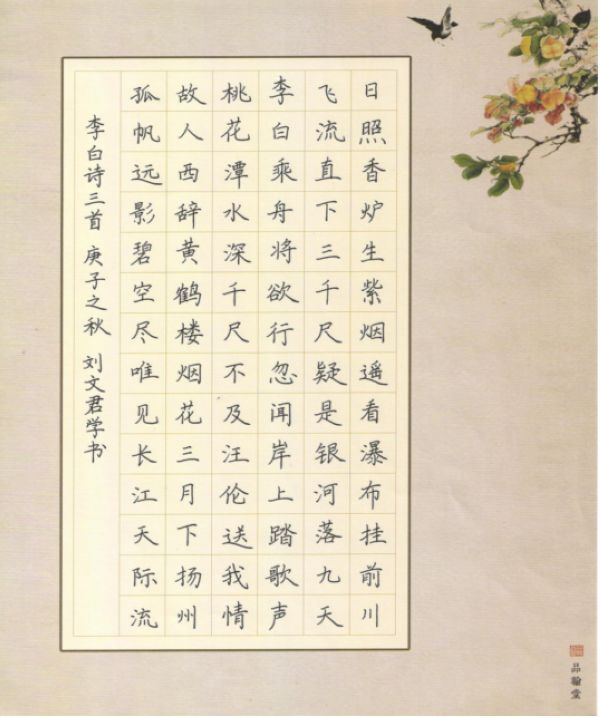 日照香炉生紫烟遥看瀑布挂前川
飞流直下三千尺疑是银河落九天
李白乘舟将欲行忽闻岸上踏歌声
桃花潭水深千尺不及汪伦送我情
故人西辞黄鹤楼烟花三月下扬州
孤帆远影碧空尽唯见长江天际流
李白诗三首 庚子之秋 刘文君学书
品翰堂